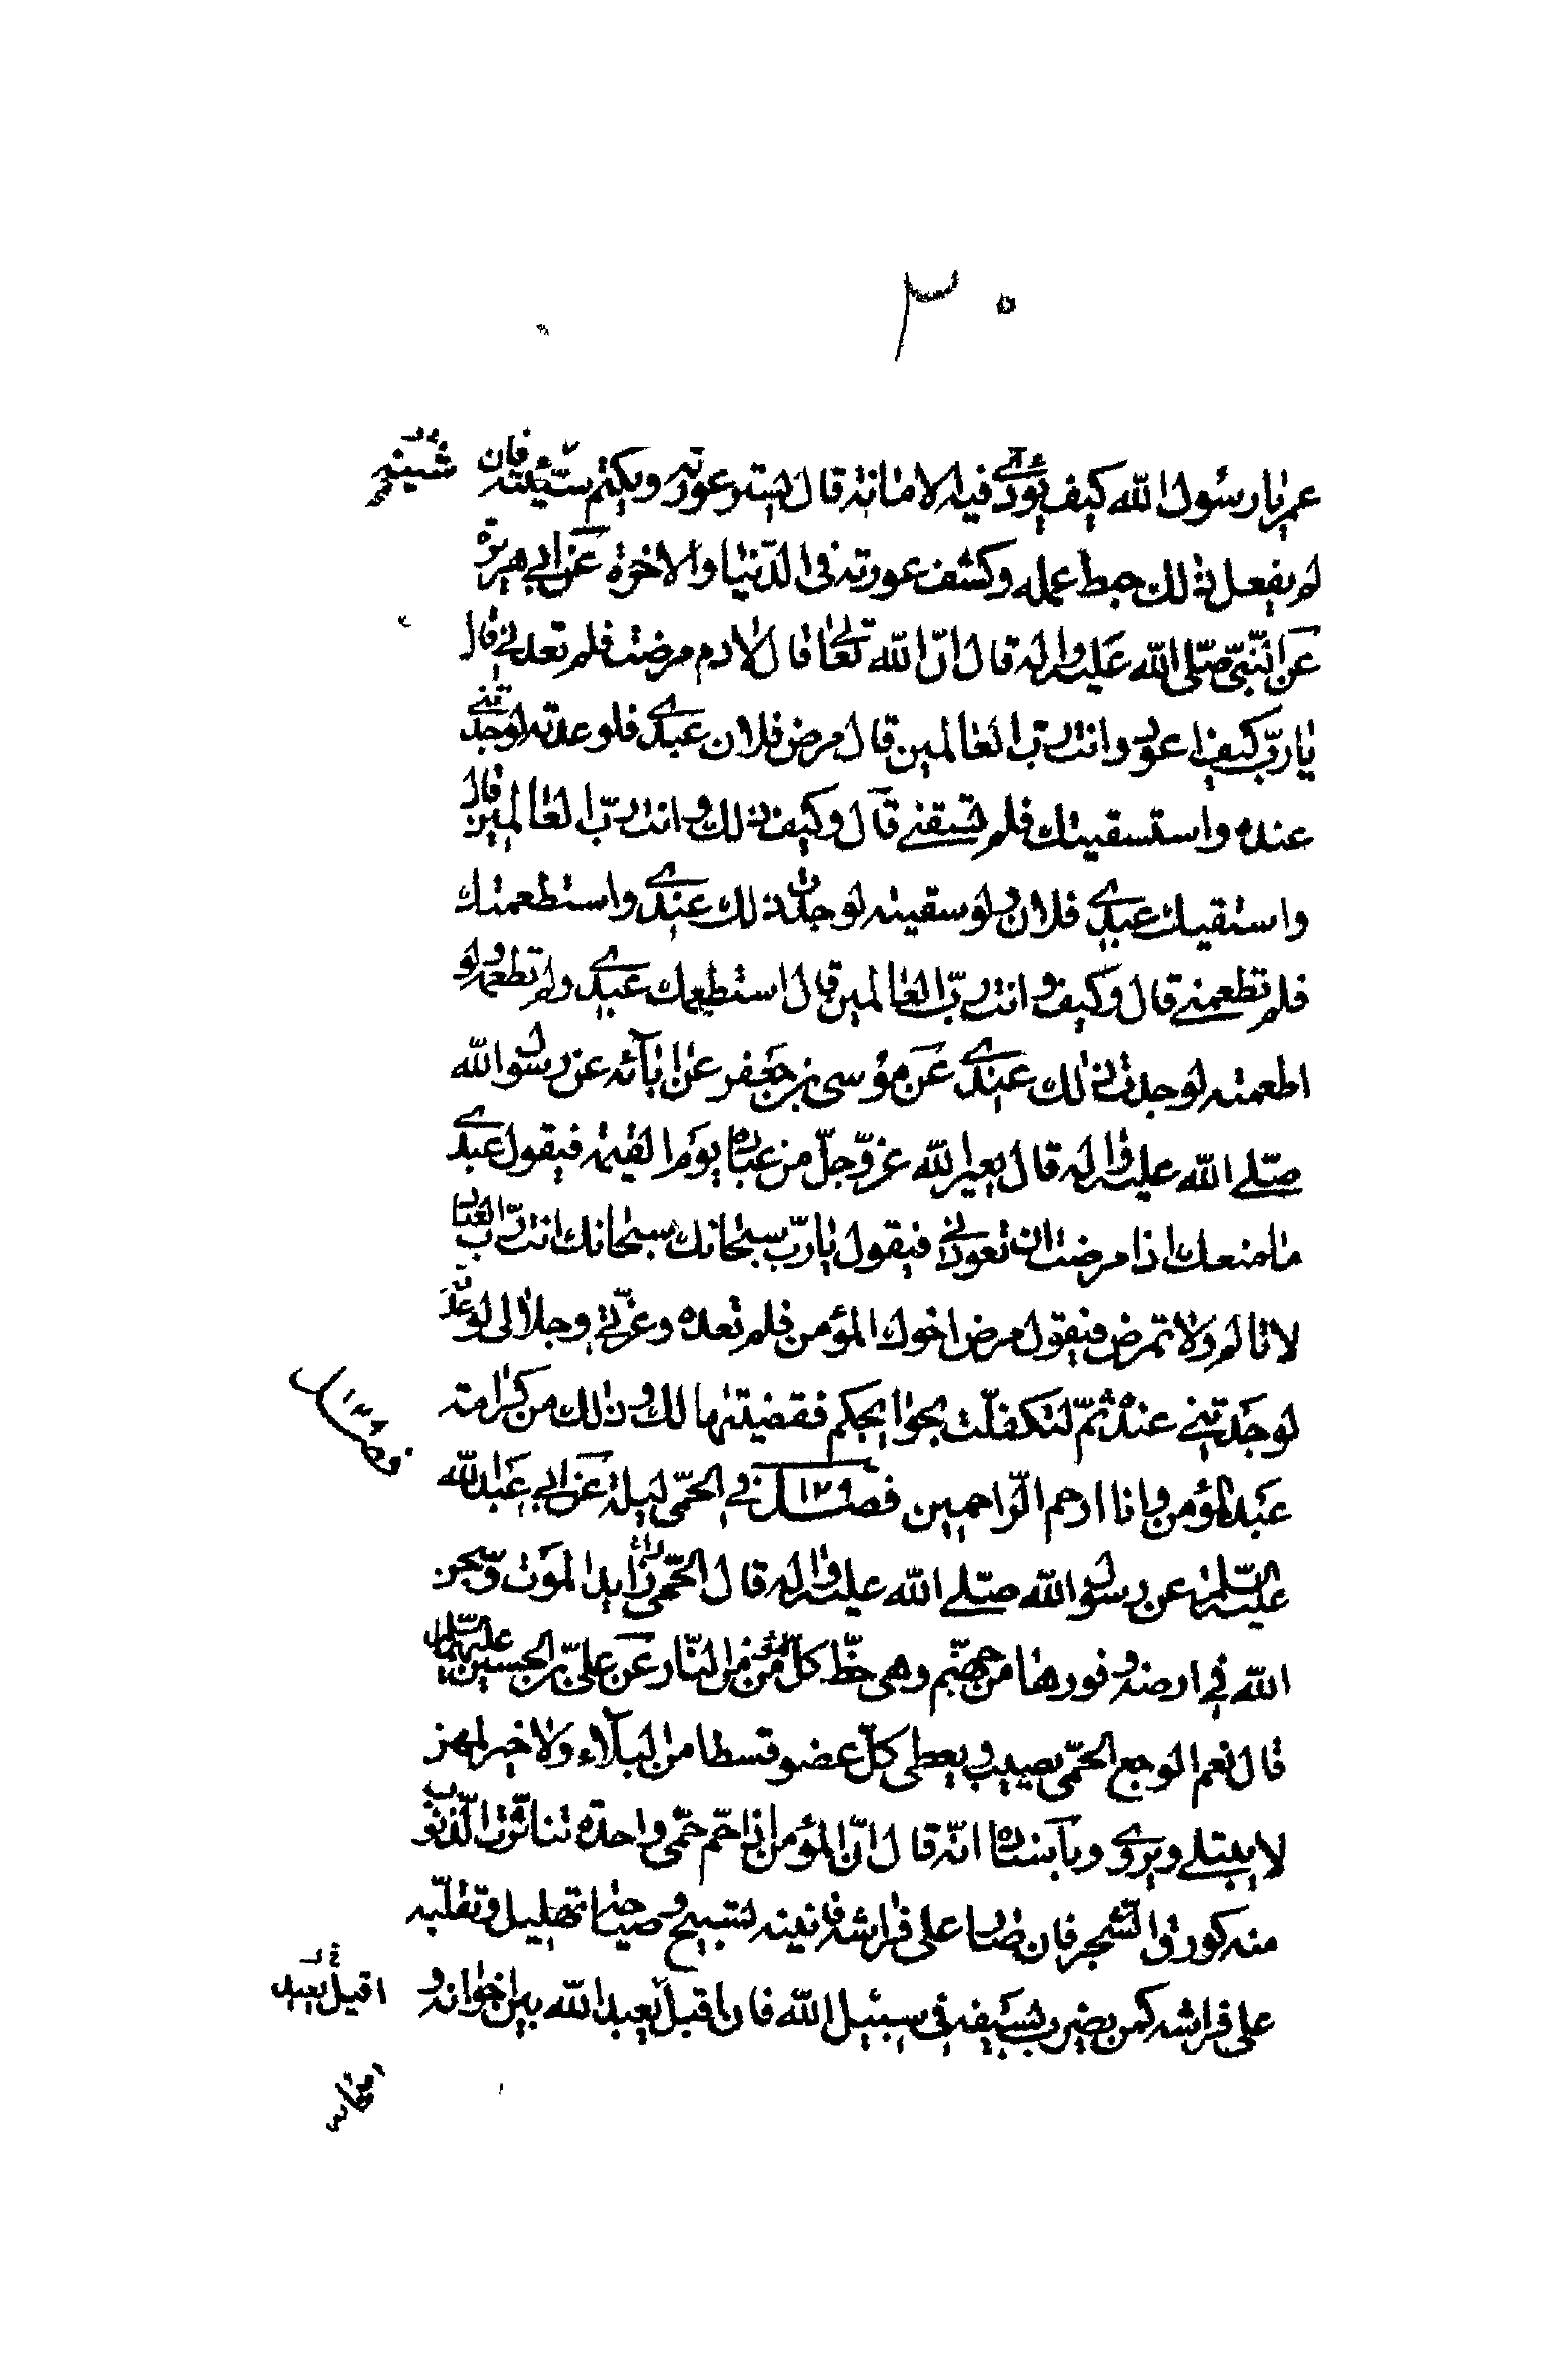 ٢٠
عمر يا رسول الله كيف يؤدى فيه الامانة قال يستر عورته ويكتم سيئته فان
شينه
لم يفعل ذلك حبط عمله وكشف عورته فى الدنيا والاخرة عن ابي هريرة
عن النبي صلى الله عليه واله قال ان الله تعالى قال لادم مرضت فلم تعدنى قال
يا رب كيف اعودك وانت رب العالمين قال مرض فلان عبدى فلو عدته لوجدتنى
عنده واستسقيتك فلم تسقنى قال وكيف ذلك وانت رب العالمين قال
واستقيك عبدى فلان ولو سقيته لوجدت ذلك عندى واستطعمتك
فلم تطعمنى قال وكيف وانت رب العالمين قال استطعمك عبدى ولم تطعمه ولو
اطعمته لوجدت ذلك عندى عن موسى بن جعفر عن ابائه عن رسول الله
صلى الله عليه واله قال يعير الله عز وجل من عباده يوم القيمة فيقول عبدى
ما منعك اذا مرضت ان تعودنى فيقول يا رب سبحانك سبحانك انت رب العباد
لا تالم ولا تمرض فيقول مرض اخوك المؤمن فلم تعده وعزتى وجلالى لو عدته
لوجدتنى عنده ثم لتكفلت بحوايجكم فقضيتها لك وذلك من كرامة
عبد المؤمن وانا ارحم الراحمين فصل ١٢٩ في الحمى ليلة عن ابي عبد الله
فصل ١٢٨
عليه السلم عن رسول الله صلى الله عليه واله قال الحمى رايد الموت وسجن
الله في ارضه وفورها من جهنم وهى حظ كل مؤمن من النار عن على بن الحسين عليهما السلم
قال نعم الوجع الحمى يصيب ويعطى كل عضو قسطا من البلاء ولا خير لمن
لا يبتلى ويروى وباسناده انه قال ان المؤمن اذا حم حمى واحدة تناثرت الذنوب
منه كورق الشجر فان صار على فراشه فانينه تسبيح وصياحه تهليل وتقلبه
على فراشه كمن يضرب بسيفه في سبيل الله فان اقبل يعبد الله بين اخوانه و
اقبل يعبد